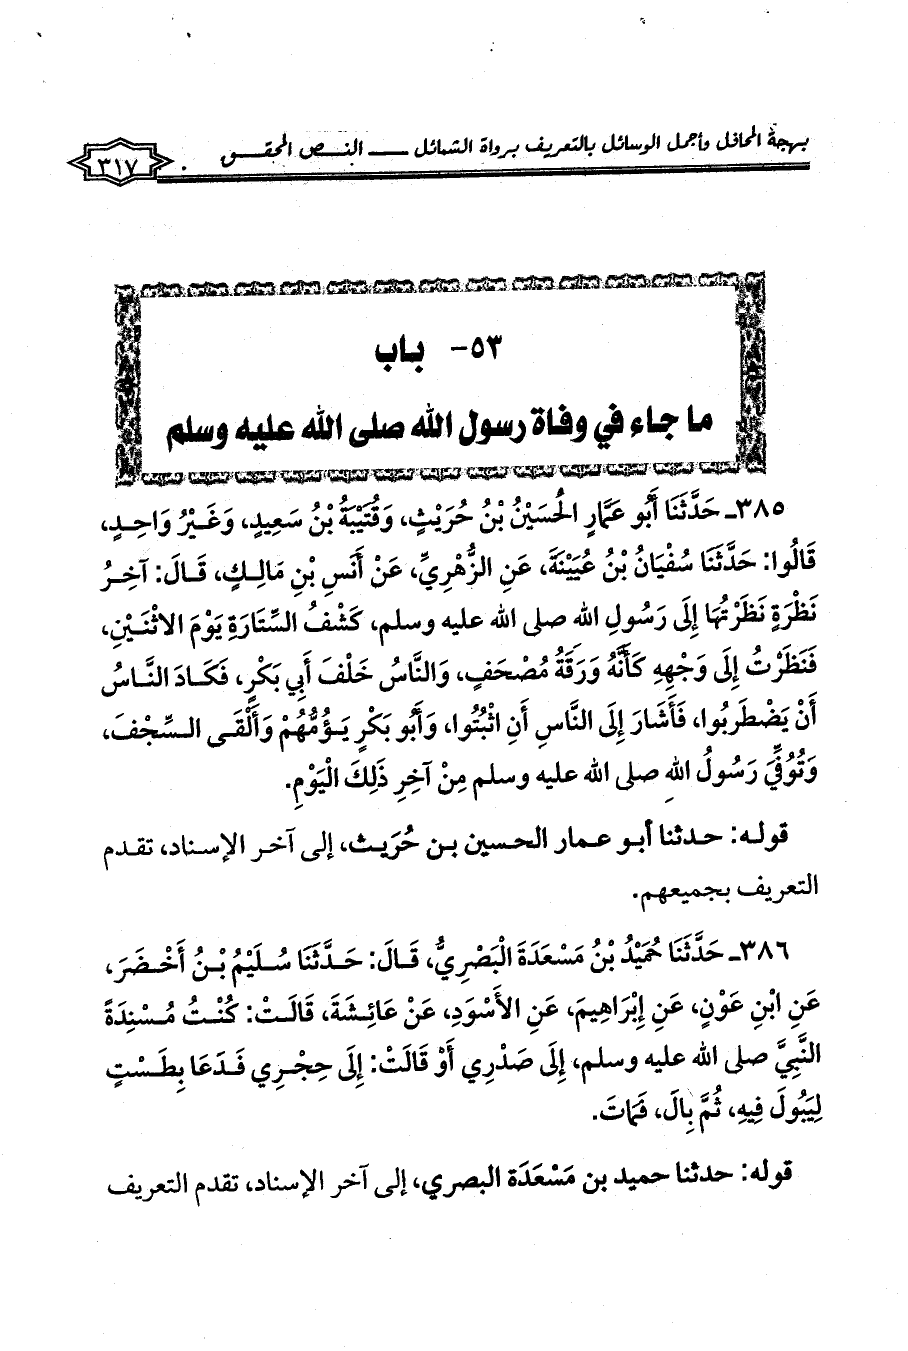 بهجة المحافل وأجمل الوسائل بالتعريف برواة الشمائل ــــ النص المحقق
٣١٧
٥٣- باب
ما جاء في وفاة رسول الله صلى الله عليه وسلم
٣٨٥ـ حَدَّثَنَا أَبُو عَمَّارٍ الحُسَيْنُ بْنُ حُرَيْثٍ، وَقُتَيْبَةُ بْنُ سَعِيدٍ، وَغَيْرُ وَاحِدٍ،
قَالُوا: حَدَّثَنَا سُفْيَانُ بْنُ عُيَيْنَةَ، عَنِ الزُّهْرِيِّ، عَنْ أَنَسِ بْنِ مَالِكٍ، قَالَ: آخِرُ
نَظْرَةٍ نَظَرْتُهَا إِلَى رَسُولِ الله صلى الله عليه وسلم، كَشْفُ السِّتَارَةِ يَوْمَ الاثْنَيْنِ،
فَنَظَرْتُ إِلَى وَجْهِهِ كَأَنَّهُ وَرَقَةُ مُصْحَفٍ، وَالنَّاسُ خَلْفَ أَبِي بَكْرٍ، فَكَادَ النَّاسُ
أَنْ يَضْطَرِبُوا، فَأَشَارَ إِلَى النَّاسِ أَنِ اثْبُتُوا، وَأَبُو بَكْرٍ يَؤُمُّهُمْ وَأَلْقَى السِّجْفَ،
وَتُوُفِّيَ رَسُولُ اللهِ صلى الله عليه وسلم مِنْ آخِرِ ذَلِكَ الْيَوْمِ.
قوله: حدثنا أبو عمار الحسين بن حُرَيث، إلى آخر الإسناد، تقدم
التعريف بجميعهم.
٣٨٦ـ حَدَّثَنَا حُمَيْدُ بْنُ مَسْعَدَةَ الْبَصْرِيُّ، قَالَ: حَدَّثَنَا سُلَيْمُ بْنُ أَخْضَرَ،
عَنِ ابْنِ عَوْنٍ، عَنِ إِبْرَاهِيمَ، عَنِ الأَسْوَدِ، عَنْ عَائِشَةَ، قَالَتْ: كُنْتُ مُسْنِدَةً
النَّبِيَّ صلى الله عليه وسلم، إِلَى صَدْرِي أَوْ قَالَتْ: إِلَى حِجْرِي فَدَعَا بِطَسْتٍ
لِيَبُولَ فِيهِ، ثُمَّ بِالَ، فَمَاتَ.
قوله: حدثنا حميد بن مَسْعَدَة البصري، إلى آخر الإسناد، تقدم التعريف